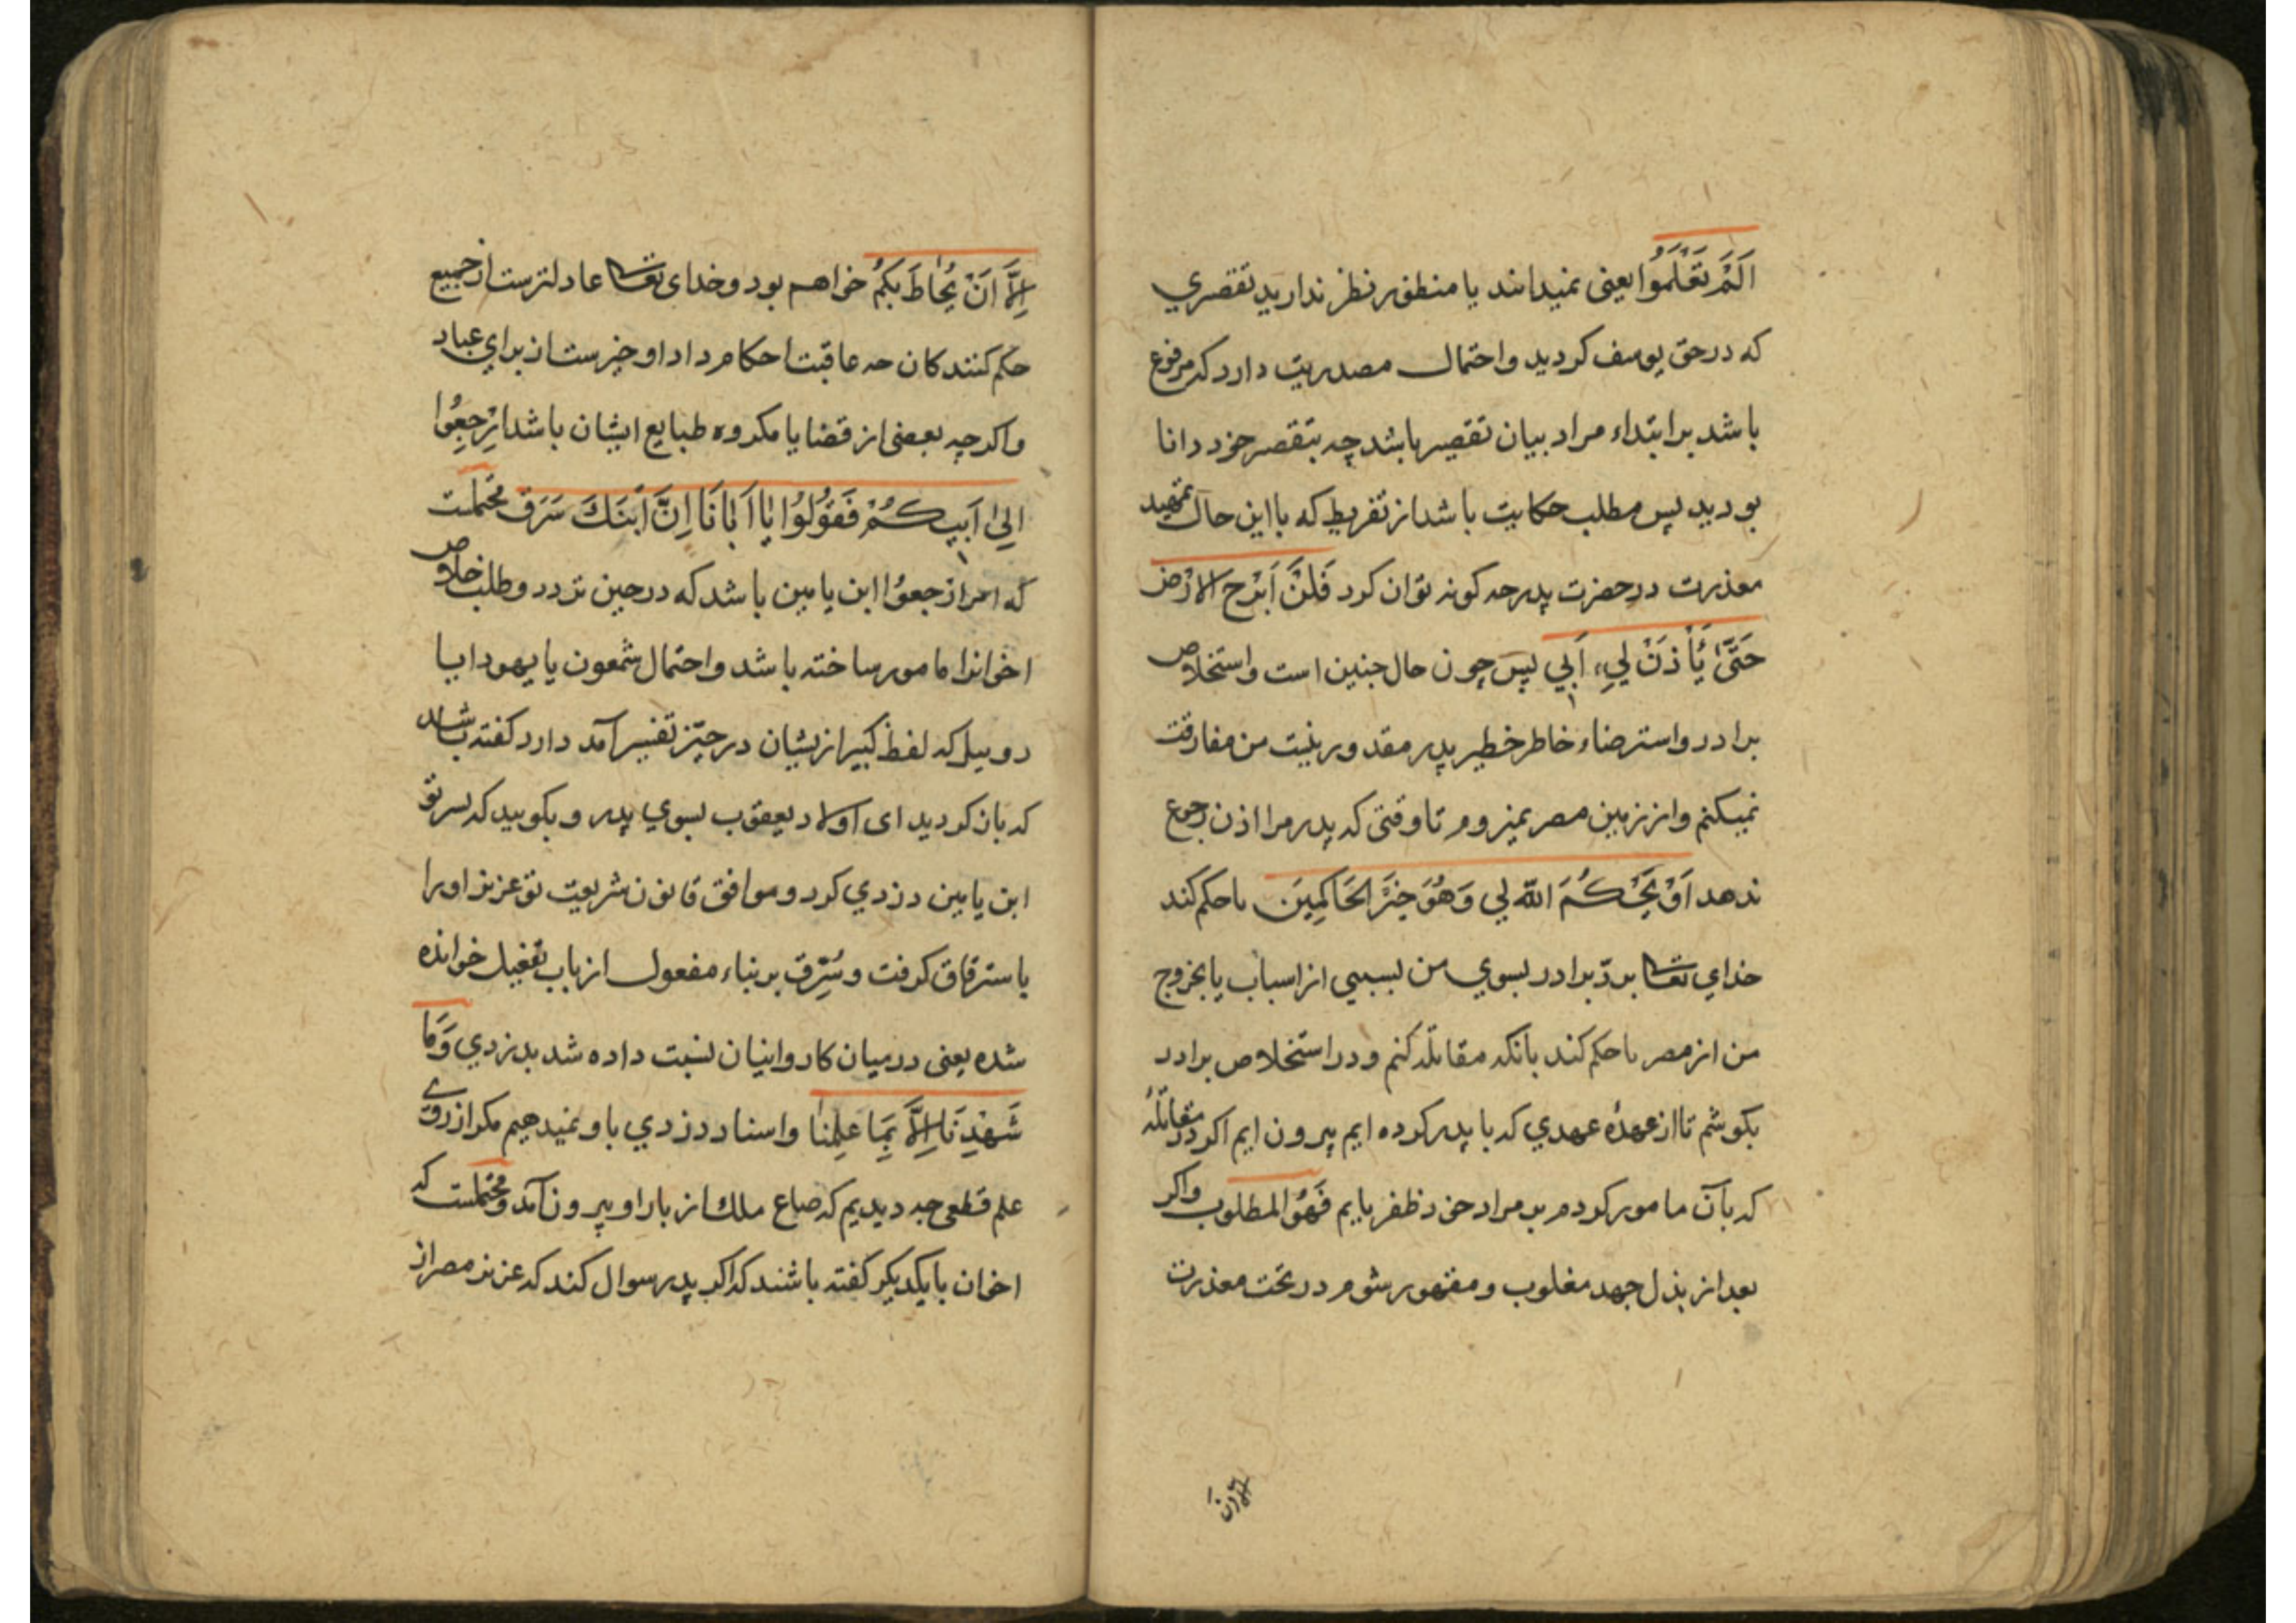 اَلَمْ تَعْلَمُوا یعنی نمیدانند یا منظور نظر ندارید تقصیری
که در حق یوسف کردید و احتمال مصدریت دارد که مرفوع
باشد بر ابتداء مراد بیان تقصیر باشد چه بتقصیر خود دانا
بودید پس مطلب حکایت باشد از تفریط که با این حال تمهید
معذرت در حضرت پدر چه کونه توان کرد فَلَنْ اَبْرَحَ الاَرْضَ
حَتّیٰ یَأْذَنَ لِي اَبي پس چون حال چنین است و استخلاص
برادر و استرضاء خاطر خطیر پدر مقدور نیست من مفارقت
نمیکنم و از زمین مصر نمیروم تا وقتی که پدر مرا اذن رجوع
ندهد اَوْ یَحْکُمَ اللّٰه لي وَهُوَ خَیْرُ الحَاکِمِینَ یا حکم کند
خدای تعالی برد برادر بسوی من بسببی از اسباب یا بخروج
من از مصر یا حکم کند بانکه مقاتله کنم و در استخلاص برادر
بکوشم تا از عهدهٔ عهدی که با پدر کرده ایم بیرون ایم اکر در مقاتلهٔ
که بآن مامور کردم بر مراد خود ظفر یابم فَهُوَ المطلوب واکر
بعد از بذل جهد مغلوب و مقهور شوم در تحت معذرت
اِلاّ اَنْ
اِلاَّ اَنْ یُحَاطَ بِکُمْ خواهم بود و خدای تعالی عادلترست از جمیع
حکم کنندکان چه عاقبت احکام داد او خیرست از برای عباد
واکرچه بعضی از قضایا مکروه طبایع ایشان باشد اِرْجِعُوا
اِلیٰ اَبیکُمْ فَقُولُوا یٰا اَبٰانَا اِنَّ ابْنَكَ سَرَقَ محتملست
که امر ارجعوُا ابن یامین باشد که در حین تردد و طلب خلاص
اخوانرا مامور ساخته باشد و احتمال شمعون یا یهودا یا
روبیل که لفظ کبیر ازیشان در حیّز تفسیر آمد دارد کفته باشد
که باز کردید ای اولاد یعقوب بسوی پدر و بکویید که پسر تو
ابن یامین دزدی کرد و موافق قانون شریعت تو عزیز او را
باسترقاق کرفت و سُرِّق بر بناء مفعول از باب تفعیل خوانده
شده یعنی در میان کاروانیان نسبت داده شد بدزدی وَمَا
شَهِدْنَا اِلاَّ بِمَا عَلِمْنَا و اسناد دزدی باو نمیدهیم مکر از روی
علم قطعی چه دیدیم که صاع ملك از بار او بیرون آمد و محتملست که
اخوان با یکدیکر کفته باشند که اکر پدر سوال کند که عزیز مصر از